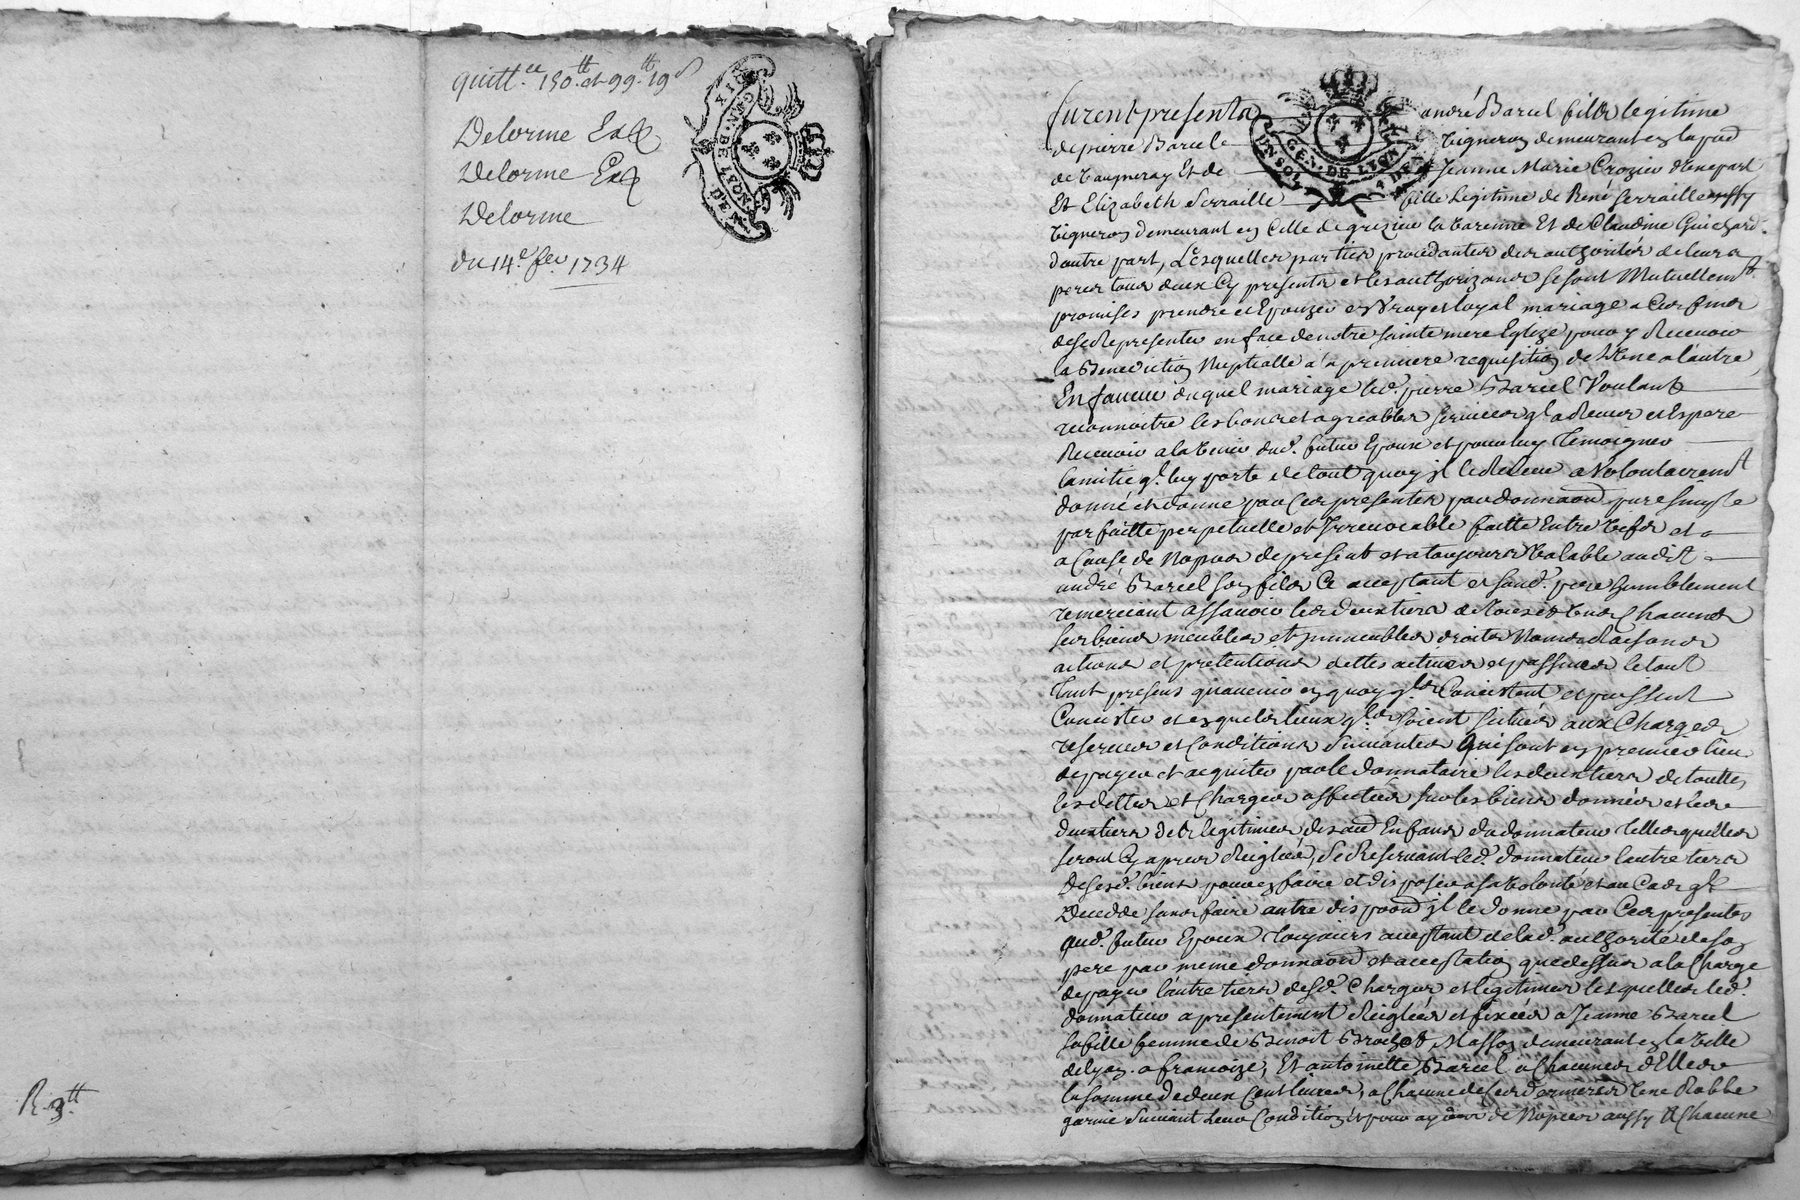 quitt.ce 150.tt et 99.tt 19 s
Delorme Exp
Delorme Exp
Delorme
du 14.e fev. 1734
DIX
GEN. DE LYON
DE N.
R. 3.tt
furent presents andré Barcel fils legitime
GEN. DE LYON
UN SOL
4 DE
de pierre Barcel vigneron demeurant en la par
de vaugneray Et de Jeanne Marie Crozier d'une part
Et Elizabeth Serraille fille Legitime de René Serraille aussy
vigneron demeurant en celle de grezieu la varenne Et de Claudine Guichard
dautre part, Lesquelles parties procedantes des authorités de leurs
peres tous deux cy presents et les authorizants se sont Mutuellemt
promises prendre et Epouzer en vray et loyal mariage a ces fins
de se representer en face de notre sainte mere Eglize pour y Recevoir
la Benediction Nuptialle a la premiere requisition de l'une a l'autre
En faveur duquel mariage led. pierre Barcel Voulant
reconnoitre les bons et agreables services q'l a Receus et Espere
Recevoir a lavenir dud. futur Epoux et pour luy Temoigner
lamitié q'l luy porte de tout quoy il le Releve a Volontairemt
donné et donne par ces presentes par donnaon pure simple
parfaitte perpetuelle et Irrevocable faitte Entre vifs et
a Cause de Nopces de present et a toujours valable audit
andré Barcel son fils Ce acceptant et sond. pere humblement
remerciant assavoir les deux tiers de tous et uns Chacuns
ses biens meubles et immeubles droits Noms Raisons
actions et pretentions dettes actives et passives le tout
tant presens quavenir en quoy q'ls Concistent et puissent
Concister et en quels lieux q'ls soient situés aux Charges
reserves et Conditions suivantes Qui sont en premier lieu
de payer et aquiter par le donnataire les deux tiers de touttes
les dettes et Charges affectées sur les biens donnés et les
deux tiers des legitimes des au Enfans du donnateur telles quelles
seront cy apres Reglées, se Reservant led. donnateur lautre tiers
de sesd. biens pour en faire et disposer a sa volonté et au Cas q'l
Decedde sans faire autre dispoon il le donne par Ces presentes
aud. futur Epoux toujours acceptant de lad. authorité de son
pere par meme donnaon et acceptation que dessus a la Charge
de payer l'autre tiers desd. Charges et legitimes lesquelles led.
donnateur a presentement Reglées et fixées a Jeanne Barcel
sa fille femme de Benoit Brochet Masson demeurant en la Ville
de lyon. a francoize, Et antoinette Barcel a Chacunes d'Elles
la somme de deux Cent livres, a Chacune de ces dernieres Une Robbe
garnie suivant leur Condition pour de Nopces aussy A Chacune